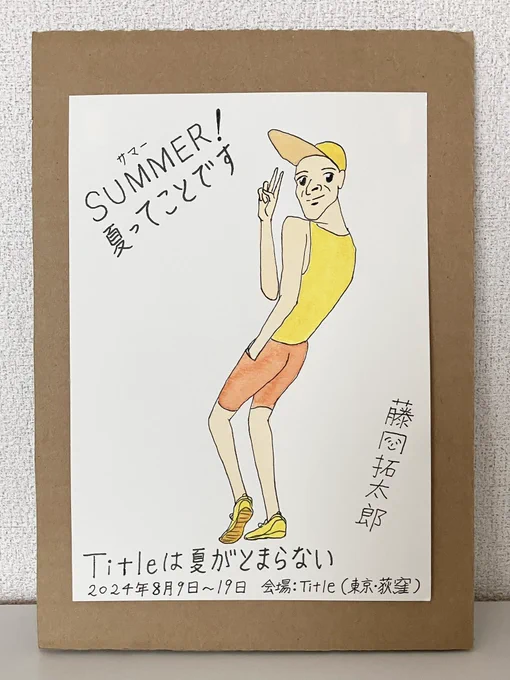 サマー
SUMMER!
夏ってことです
藤岡拓太郎
Titleは夏がとまらない
2024年8月9日～19日 会場:Title(東京・荻窪)